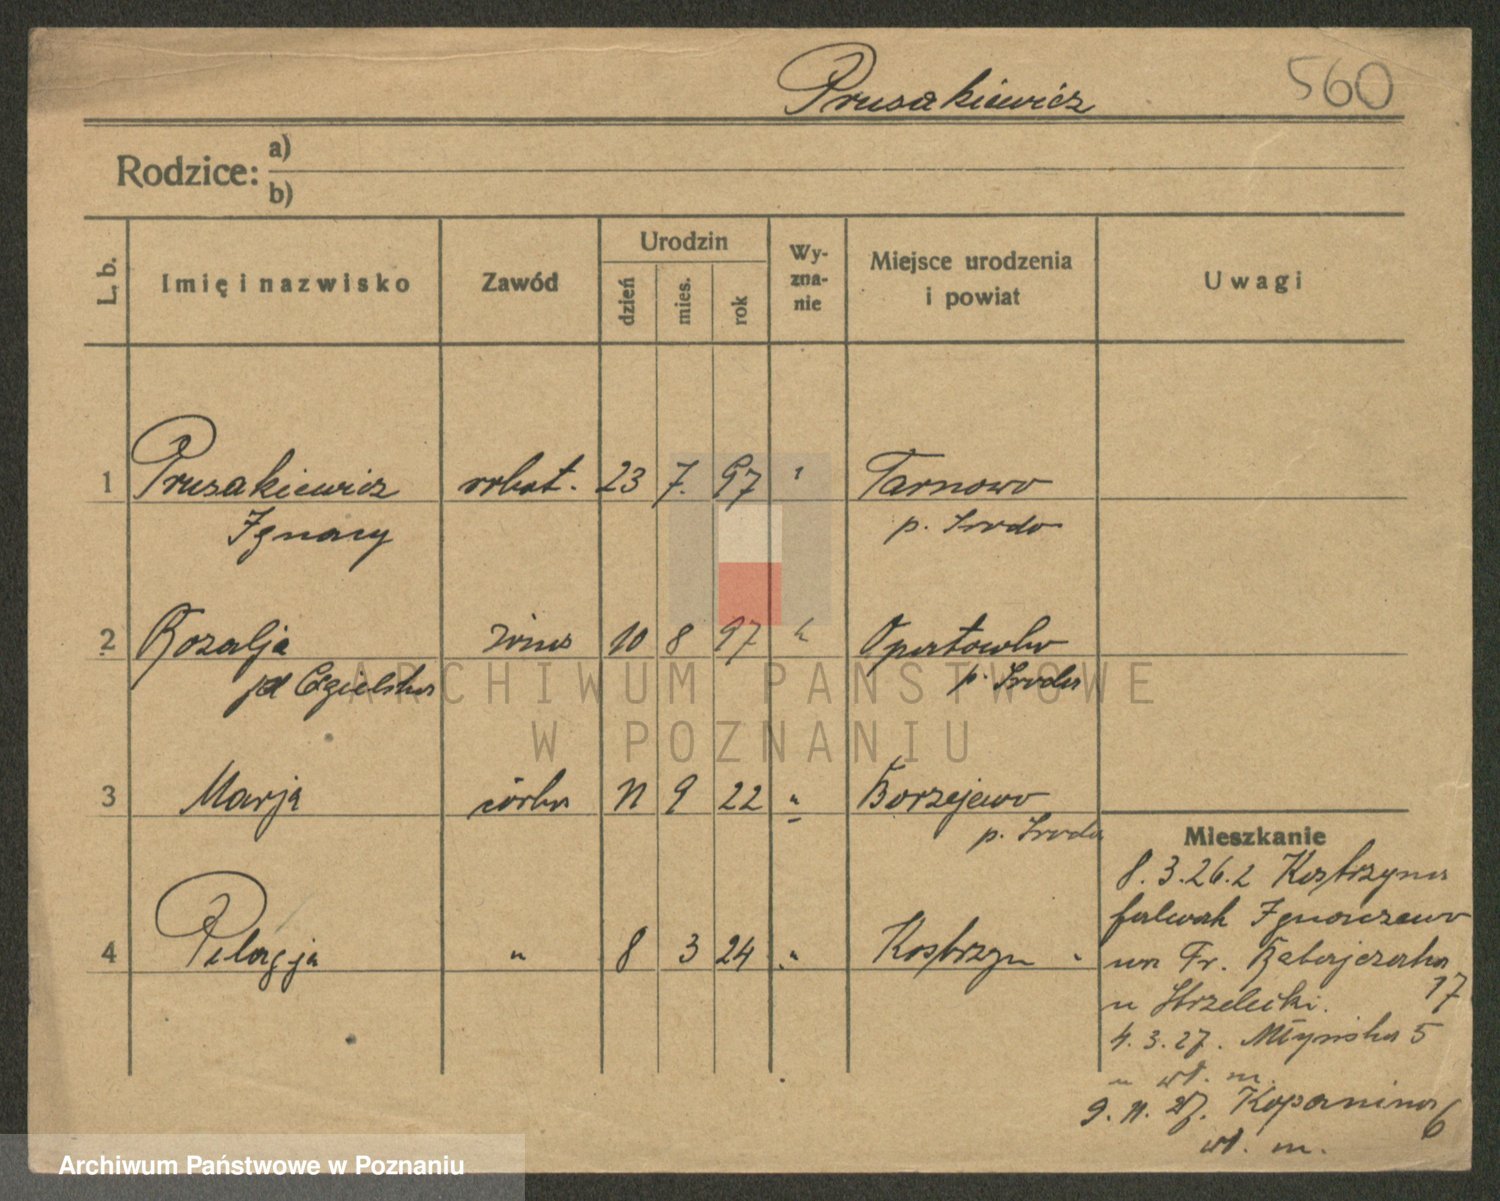 Prusakiewicz 560
Rodzice: a)
b)
L. b. Imię i nazwisko Zawód Urodzin dzień mies. rok Wy-zna-nie Miejsce urodzenia i powiat Uwagi
1 Prusakiewicz robot. 23 7. 97 Tarnowo
Ignacy p. Środa
2 Rozalja żona 10 8 97 Opatówko
p. Środa
ARCHIWUM PAŃSTWOWE
W POZNANIU
3 Marja córka 11 9 22 " Borzejewo
p. Środa
Mieszkanie
8. 3. 26. z Kostrzyna
folwark Ignacewo
4 Pelagja " 8 3 24 " Kostrzyn "
na Fr. Ratajczaka
u Strzelecki. 17
4. 3. 27. Młyńska 5
u wł. m.
9. 11. 27. Kopanina 6
wł. m.
Archiwum Państwowe w Poznaniu